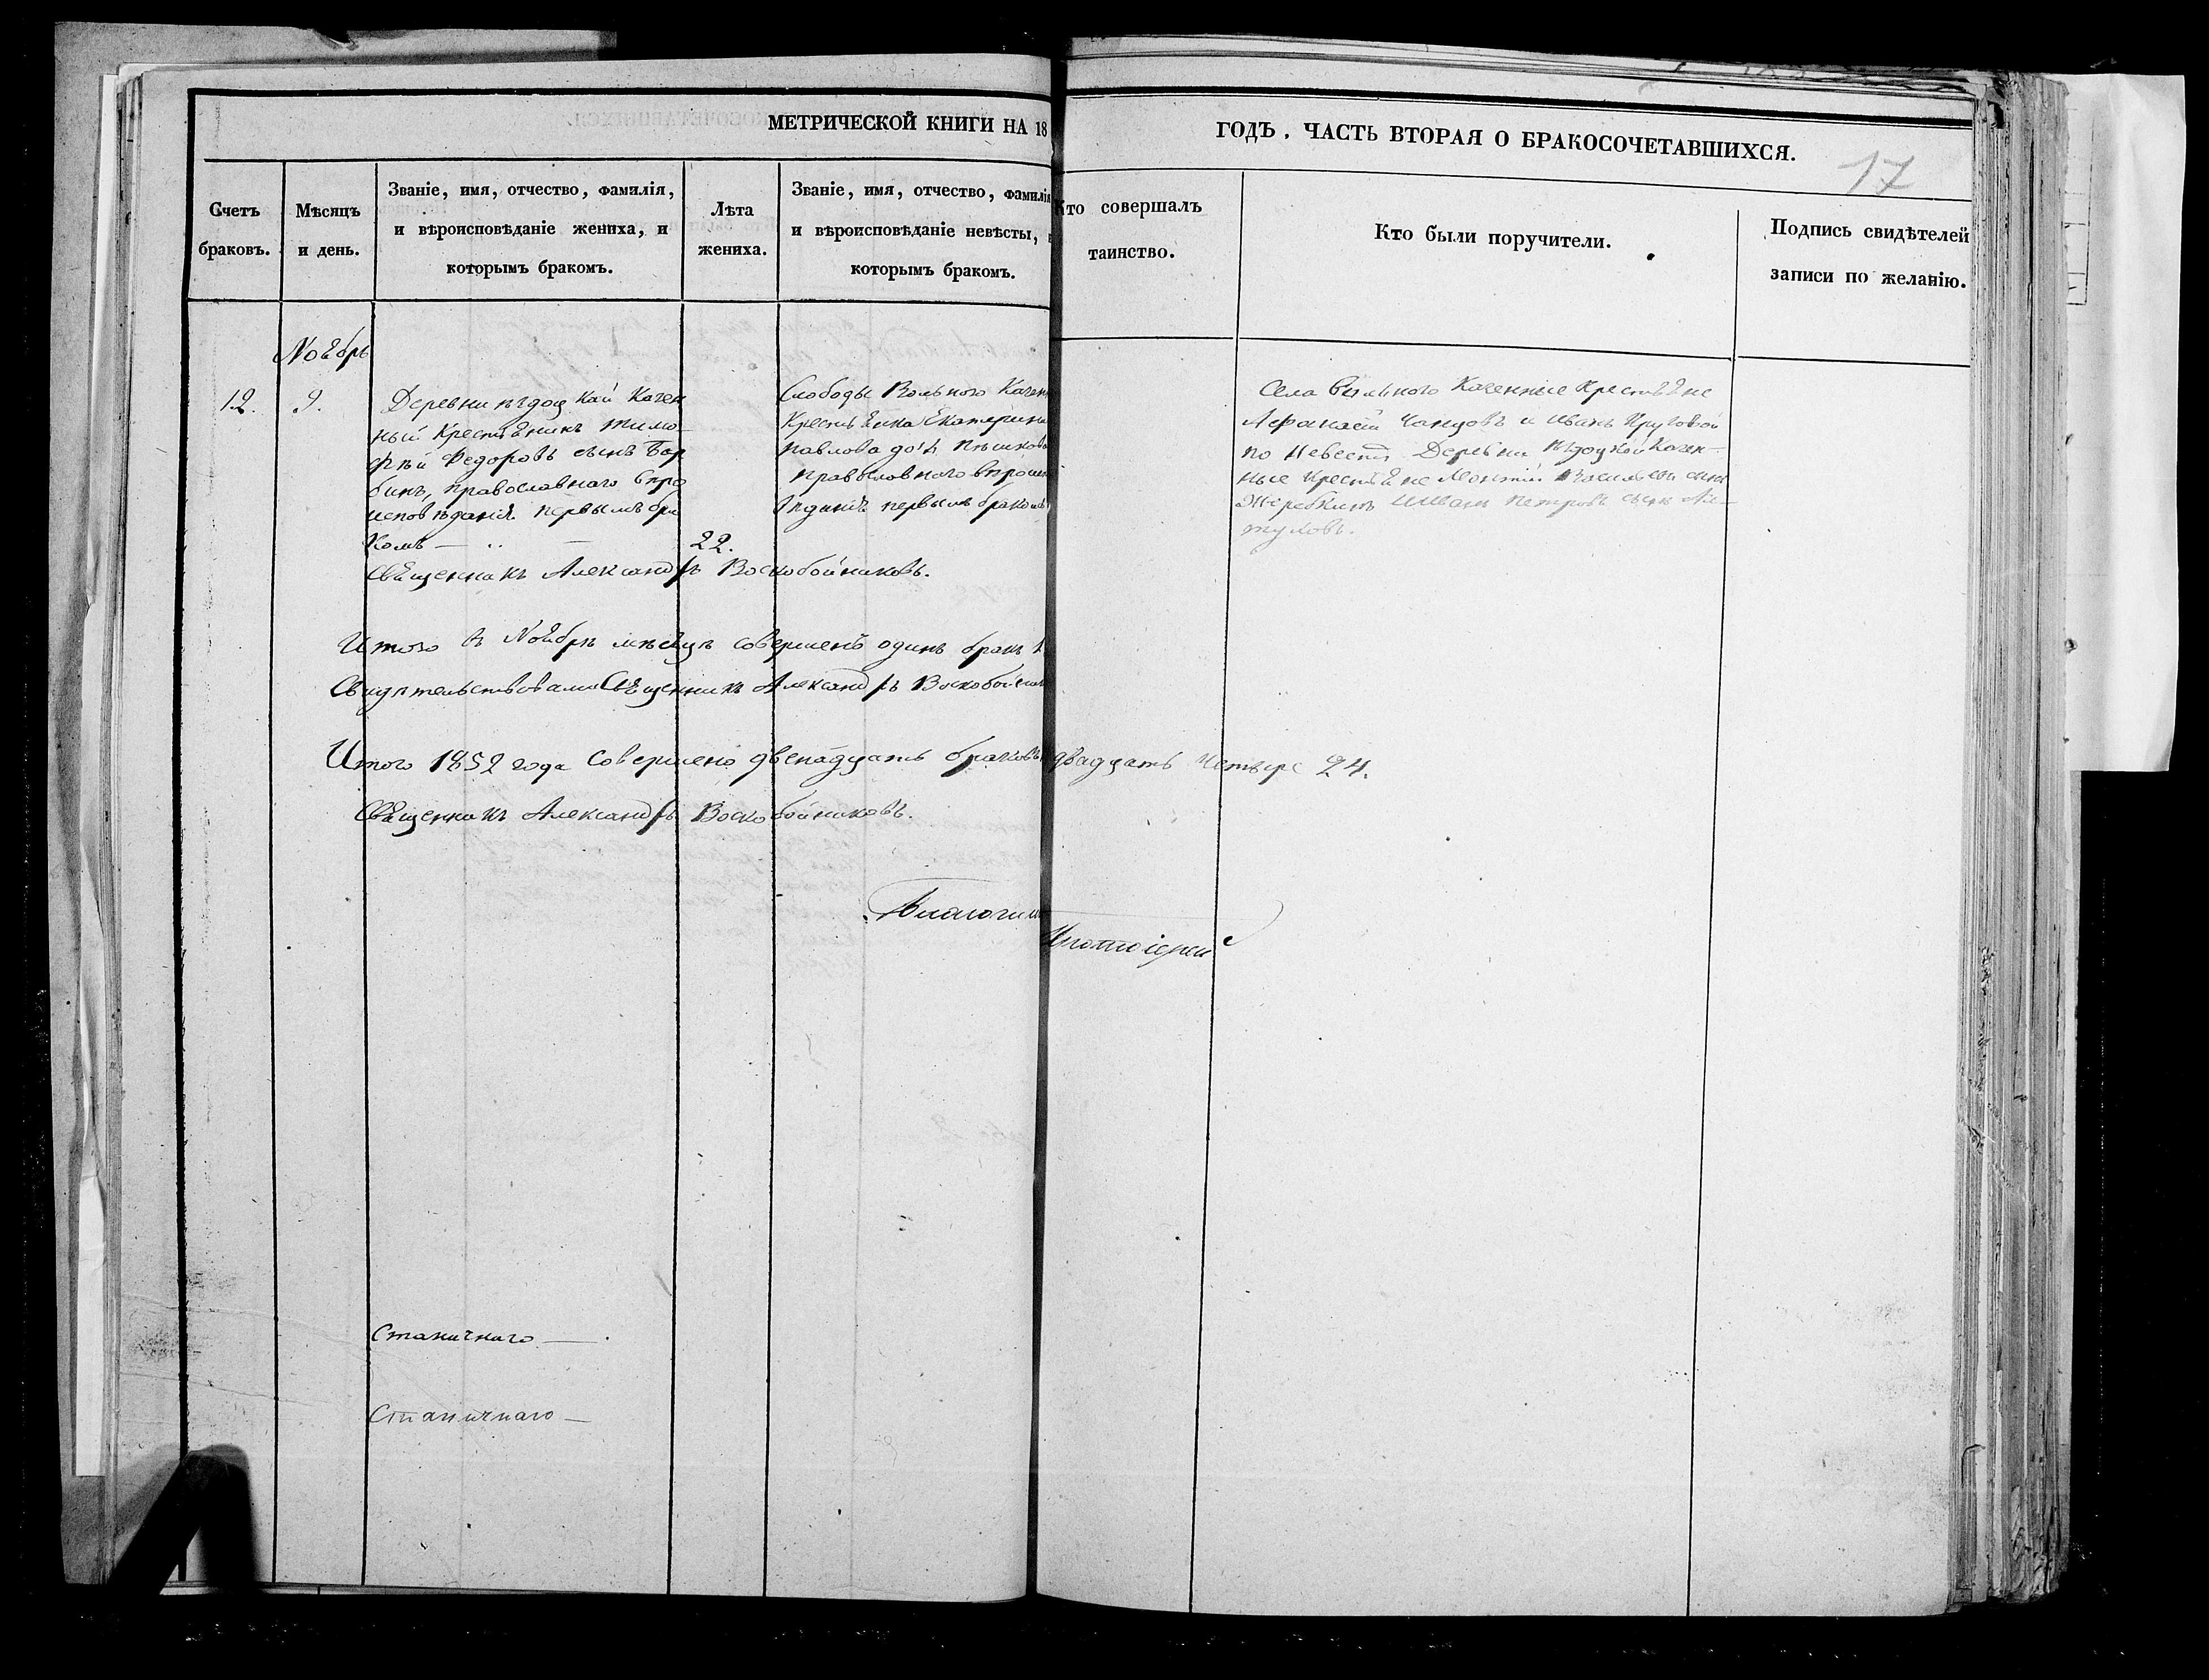 МЕТРИЧЕСКОЙ КНИГИ НА 18
ГОДЪ. ЧАСТЬ ВТОРАЯ О БРАКОСОЧЕТАВШИХСЯ.
17
Счетъ
браковъ.
Мѣсяцъ
и день.
Званіе, имя, отчество, фамилія,
и вѣроисповѣданіе жениха, и
которымъ бракомъ.
Лѣта
жениха.
Званіе, имя, отчество, фамилія
и вѣроисповѣданіе невѣсты,
которымъ бракомъ.
Кто совершалъ
таинство.
Кто были поручители.
Подпись свидѣтелей
записи по желанію.
Ноябрь
12.
9.
Деревни Казен
ный Крестьянинъ Тимо
фѣй Федоровъ сынъ
православнаго вѣро
исповѣданія первымъ бра
комъ
22.
Слободы Вольного Казен
Крестьянка Екатерина
Павлова
православного вѣроиспо
вѣданія первымъ бракомъ
Села Вольного Казенные Крестьяне
Афанасій и Иванъ Круговой
по Невестѣ Деревни Казен-
ные Крестьяне Леонтій Васильевъ сынъ
Жеребкинъ Иванъ Петровъ сынъ
Священникъ Александръ Воскобойниковъ.
Итого в Ноябрѣ мѣсяцѣ совершенъ одинъ бракъ 1
Священникъ Александръ
Итого 1852 года совершено двенадцать браковъ двадцать четыре 24.
Священникъ Александръ Воскобойниковъ.
Протоіерей
Станичнаго
Станичнаго